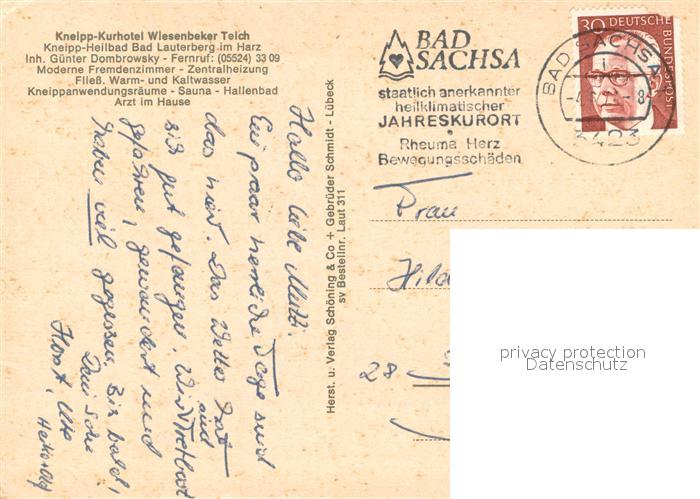 Kneipp-Kurhotel Wiesenbeker Teich
Kneipp-Heilbad Bad Lauterberg im Harz
Inh. Günter Dombrowsky - Fernruf: (05524) 33 09
Moderne Fremdenzimmer - Zentralheizung
Fließ. Warm- und Kaltwasser
Kneippanwendungsräume - Sauna - Hallenbad
Arzt im Hause
Hallo liebe Mutti.
Ein paar herrliche Tage sind
das hier. Das Wetter hat
sich gut gefangen. Wir sind
gefahren, gewandert und
haben viel gegessen. Bis bald,
Horst, Ute
Herst. u. Verlag Schöning & Co + Gebrüder Schmidt - Lübeck
sv Bestellnr. Laut 311
BAD
SACHSA
staatlich anerkannter
heilklimatischer
JAHRESKURORT
Rheuma Herz
Bewegungsschäden
BAD SACHSA
3423
30 DEUTSCHE
BUNDESPOST
Frau
28
privacy protection
Datenschutz